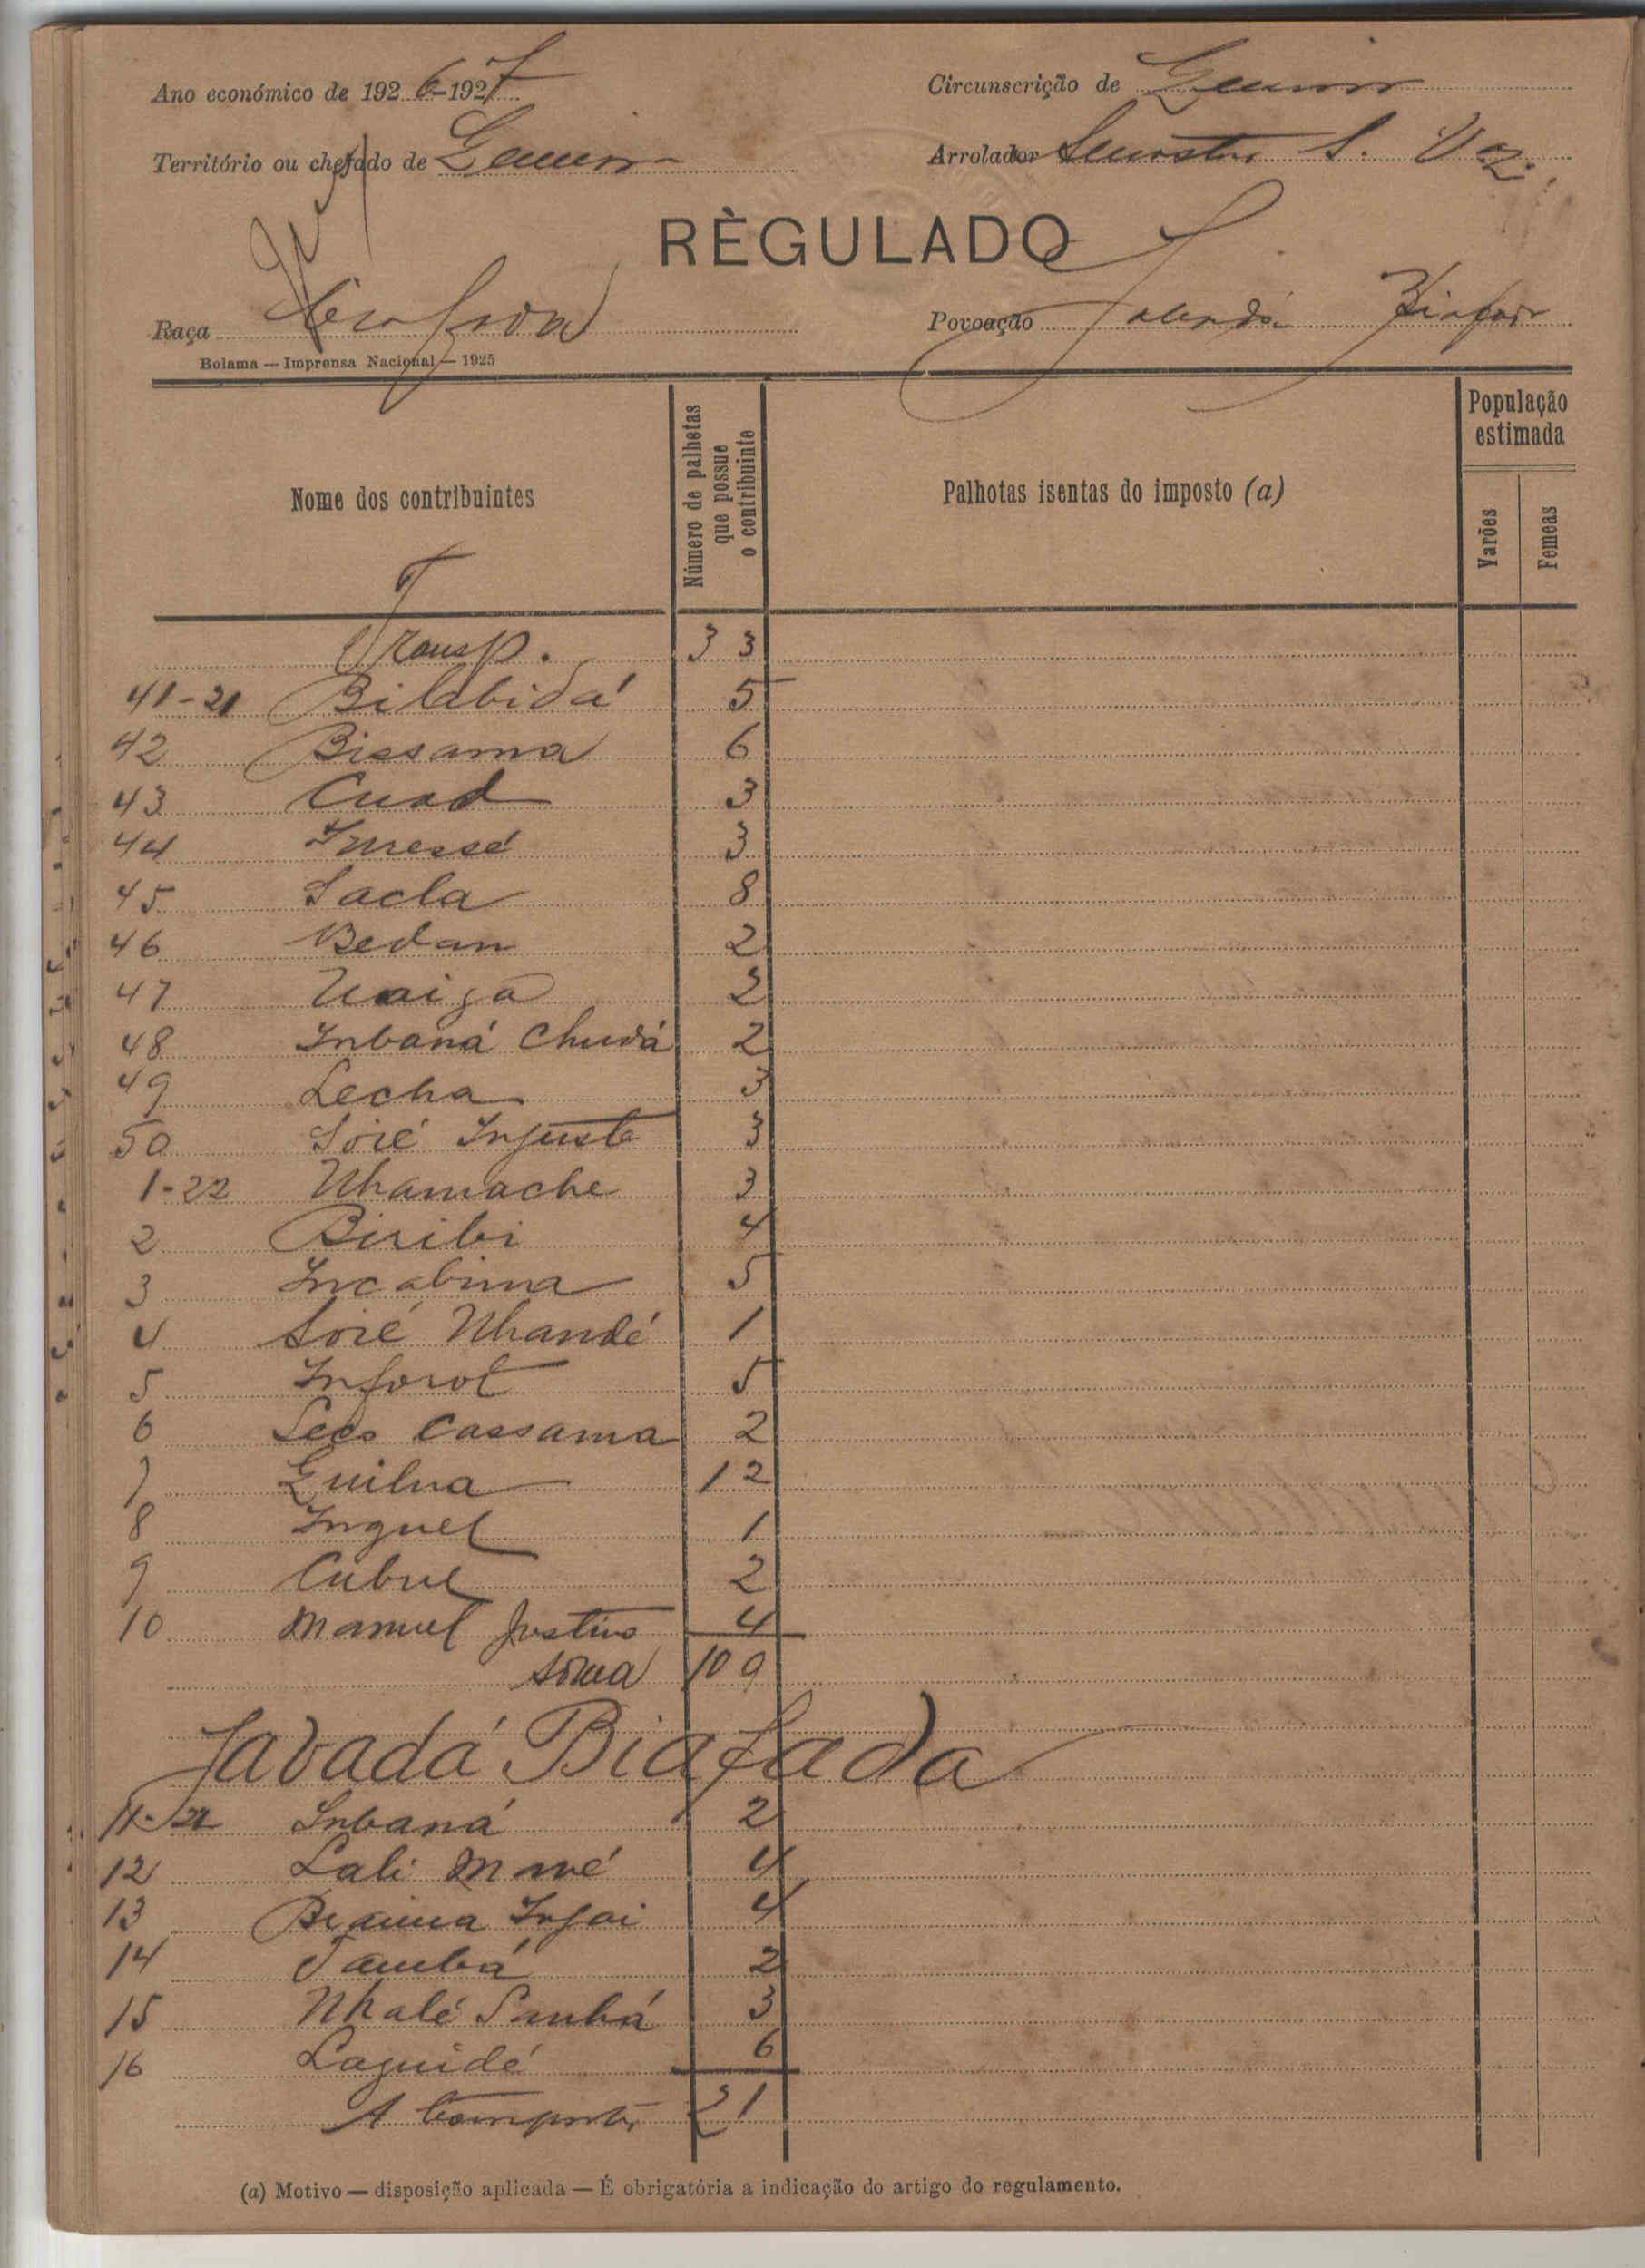 Ano económico de 1926-1927
Circunscrição de
Território ou chefado de
Arrolador S. Vaz
RÈGULADO
Raça
Povoação
Bolama — Imprensa Nacional — 1925
Nome dos contribuintes
Número de palhetas que possue o contribuinte
Palhotas isentas do imposto (a)
População estimada
Varões
Femeas
Transp. 33
41-21 Bilabidá 5
42 Bissama 6
43 3
44 3
45 Sacla 8
46 Bedam 2
47 2
48 Inbaná Chudá 2
49 Lecha 3
50 Soié Injusta 3
1-22 Nhamache 3
2 Biribi 4
3 5
4 Soré Nhandé 1
5 Inforot 5
6 Seco Cassama 2
7 12
8 Inguel 1
9 2
10 Manuel Justino 4
Soma 109
Javadá Biafada
11-22 Inbaná 2
12 Lali Mané 4
13 Braima Injai 4
14 Tambá 2
15 Nhalé Sanhá 3
16 Laguidé 6
A transportar 21
(a) Motivo — disposição aplicada — É obrigatória a indicação do artigo do regulamento.